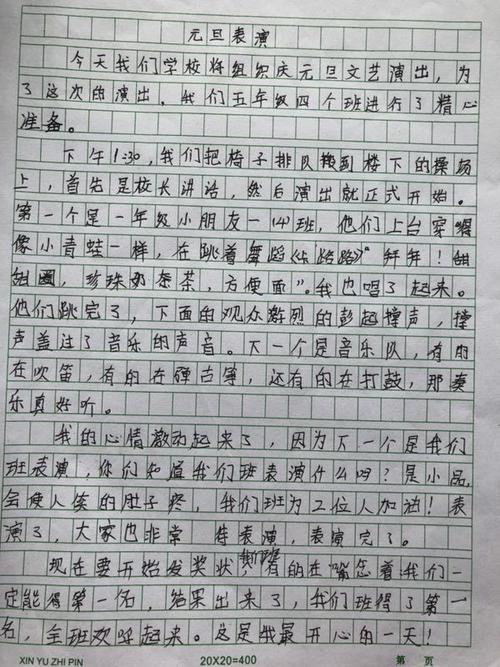 元旦表演
今天我们学校将组织庆元旦文艺演出，为
了这次的演出，我们五年级四个班进行了精心
准备。
下午1:30，我们把椅子排队搬到楼下的操场
上，首先是校长讲话，然后演出就正式开始。
第一个是一年级小朋友一(4)班，他们上台穿
像小青蛙一样，在跳着舞蹈《卡路路》“拜拜！甜
甜圈，珍珠奶茶，方便面”。我也唱了起来。
他们跳完了，下面的观众群烈的彭起撑声，撑
声盖过了音乐的声音。下一个是音乐队，有的
在吹笛，有的在弹古筝，还有的在打鼓，那奏
乐真好听。
我的心情激动起来了，因为下一个是我们
班表演，你们知道我们班表演什么吗？是小品，
会使人笑的肚子疼，我们班为2位人加油！表
演了，大家也非常 待表演，表演完了。
现在要开始发奖状，我们班有的在 着我们一
定能得第一名，结果出来了，我们班得了第一
名，全班欢呼起来。这是我最开心的一天！
XIN YU ZHI PIN 20X20=400 第 页